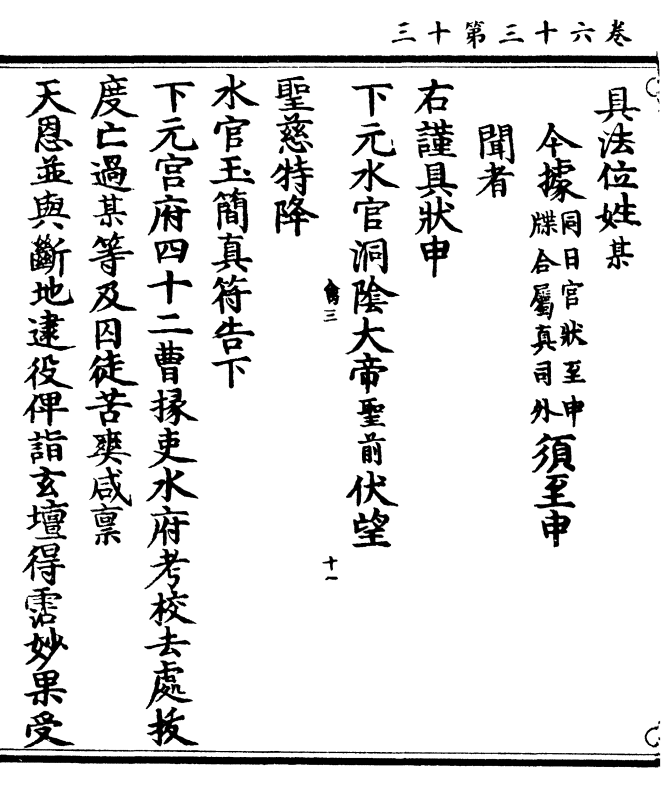 卷六十三第十三
具法位姓某
今據
同日官狀至申
牒合屬真司外
須至申
聞者
右謹具狀申
下元水官洞陰大帝聖前伏望
三
十一
聖慈特降
水官玉簡真符告下
下元宮府四十二曹掾吏水府考校去處拔
度亡過某等及囚徒苦爽咸稟
天恩並與斷地逮役俾詣玄壇得霑妙果受